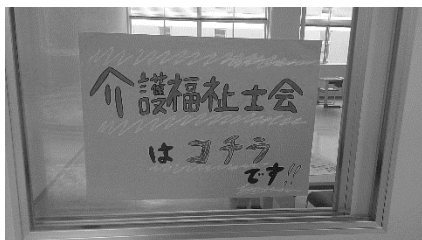 介護福祉士会
は コチラ
です!!